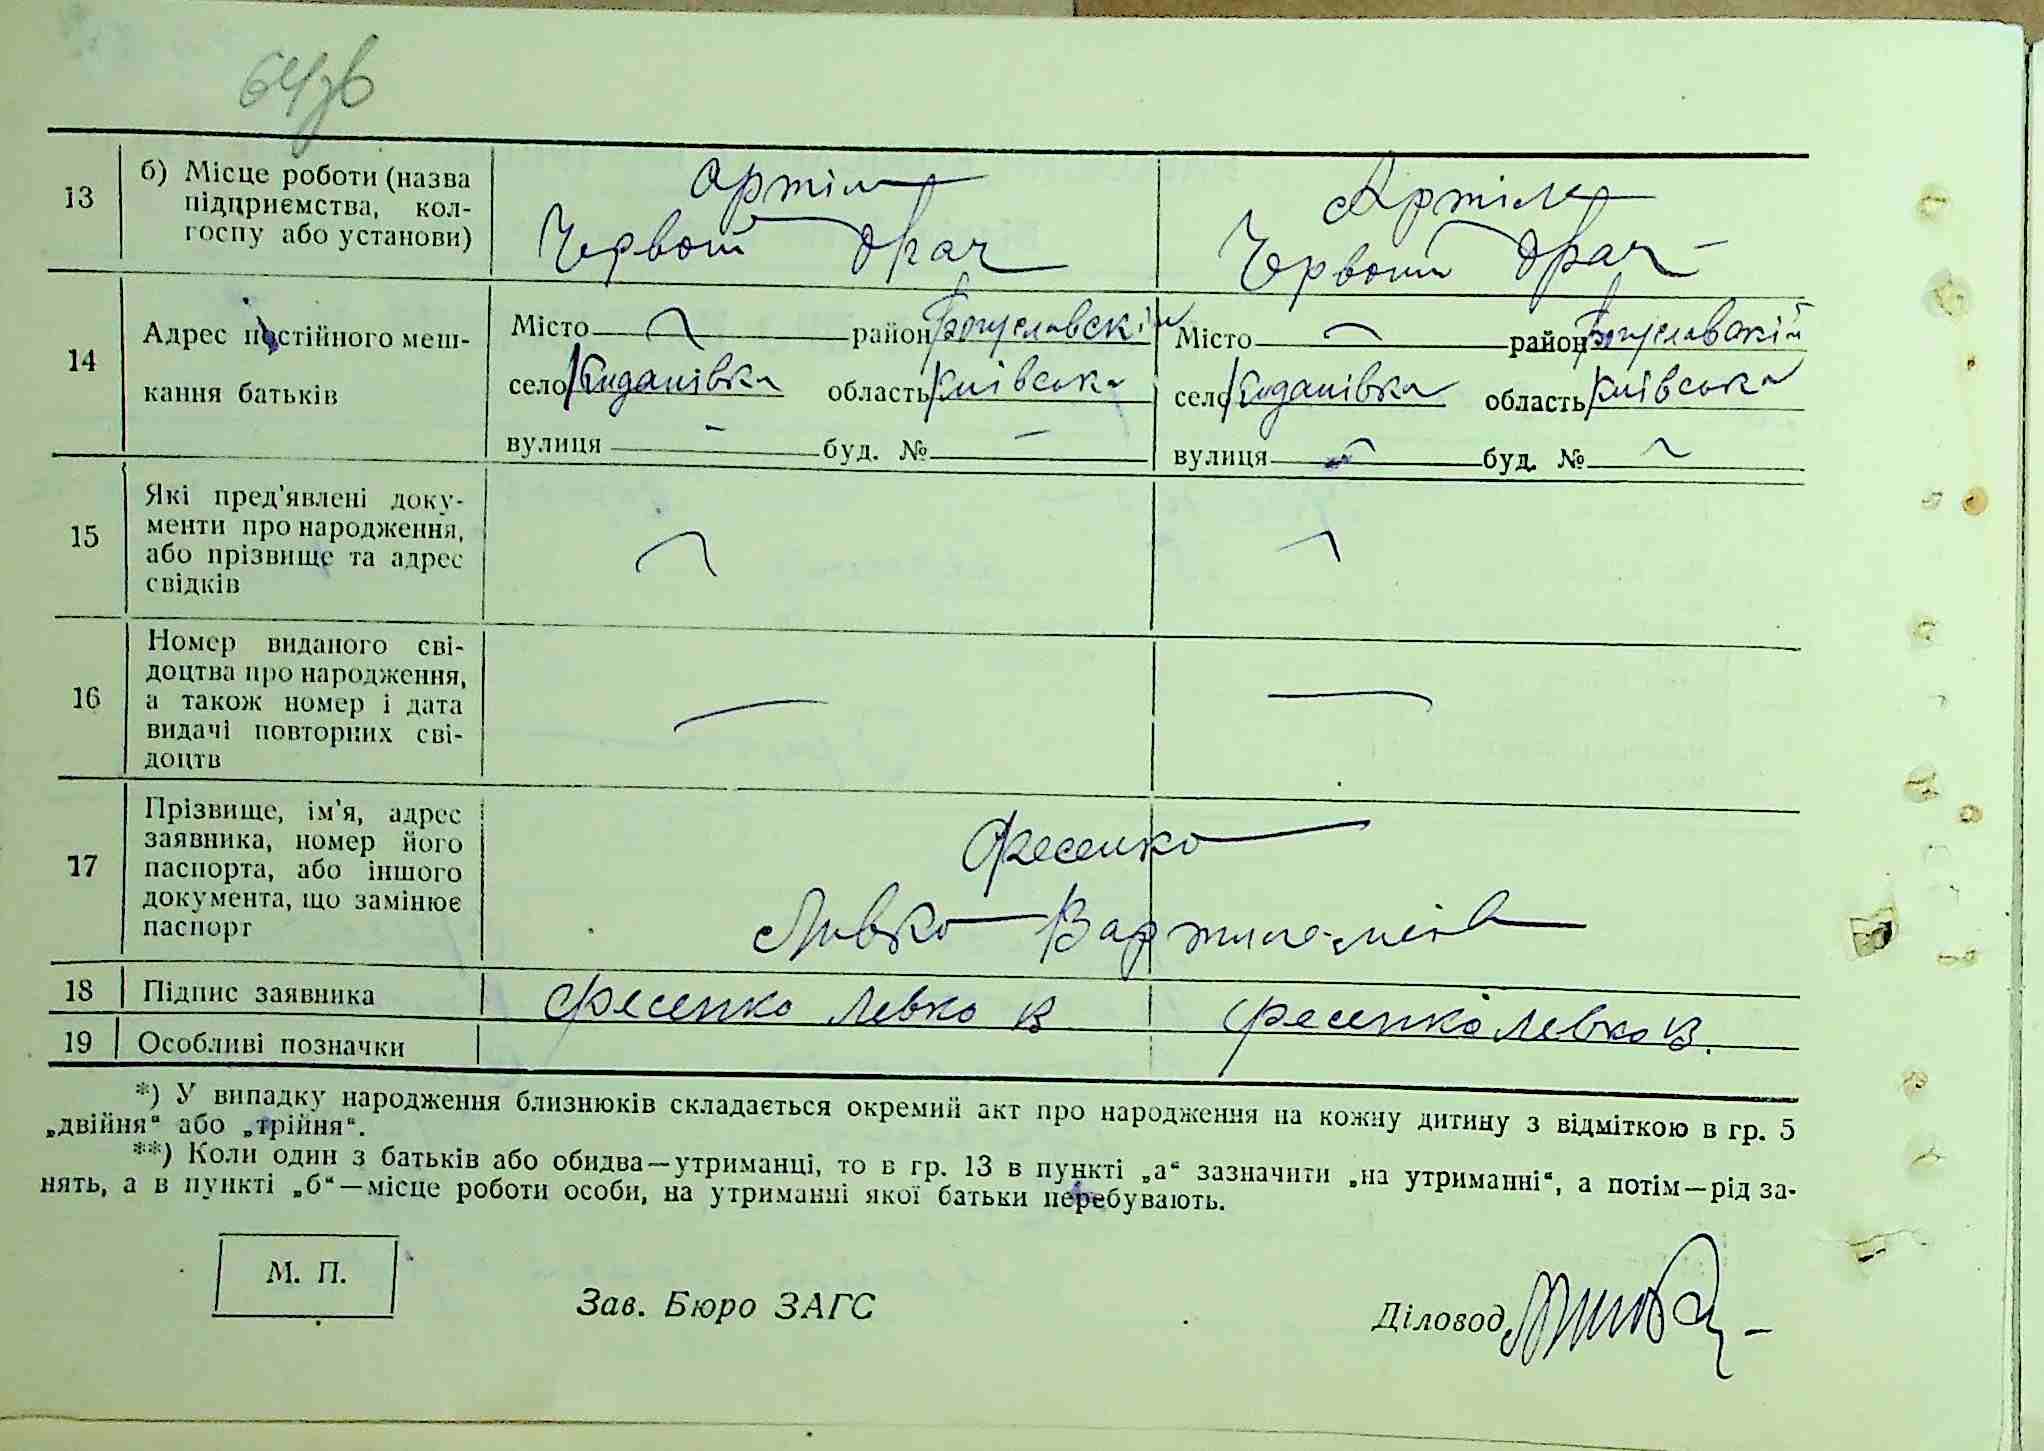 64зв
13
б) Місце роботи (назва
підприємства, кол-
госпу або установи)
артіль
Червоний Орач
Артіль
Червоний Орач
14
Адрес постійного меш-
кання батьків
Місто район Богуславский
село область Київська
вулиця – буд. № –
Місто район Богуславский
село область Київська
вулиця буд. №
15
Які пред'явлені доку-
менти про народження,
або прізвище та адрес
свідків
16
Номер виданого сві-
доцтва про народження,
а також номер і дата
видачі повторних сві-
доцтв
17
Прізвище, ім'я, адрес
заявника, номер його
паспорта, або іншого
документа, що замінює
паспорт
Фесенко
Левко
18 Підпис заявника
Фесенко Левко В
Фесенко Левко В.
19 Особливі позначки
*) У випадку народження близнюків складається окремий акт про народження на кожну дитину з відміткою в гр. 5
„двійня“ або „трійня“.
**) Коли один з батьків або обидва—утриманці, то в гр. 13 в пункті „а“ зазначити „на утриманні“, а потім—рід за-
нять, а в пункті „б“—місце роботи особи, на утриманні якої батьки перебувають.
М. П.
Зав. Бюро ЗАГС
Діловод